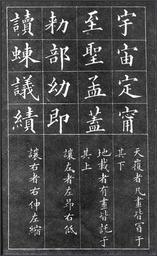 宇宙定甯
至聖孟蓋
勅部幼即
讀蝀議績
天覆者凡畫皆冒于
其下
地載者有畫皆託于
其上
讓左者左昂右低
讓右者右伸左縮